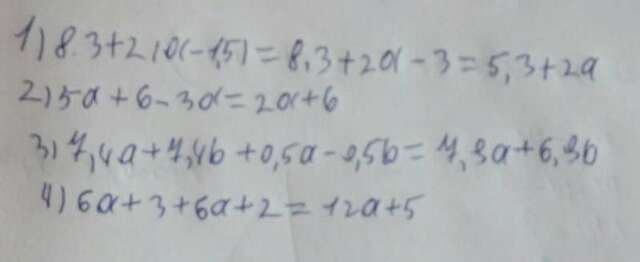 1) 8.3+2(α-1,5)=8,3+2α-3=5,3+2a
2) 5a+6-3α=2α+6
3) 7,4a+7,4b+0,5a-0,5b=7,9a+6,9b
4) 6a+3+6a+2=12a+5